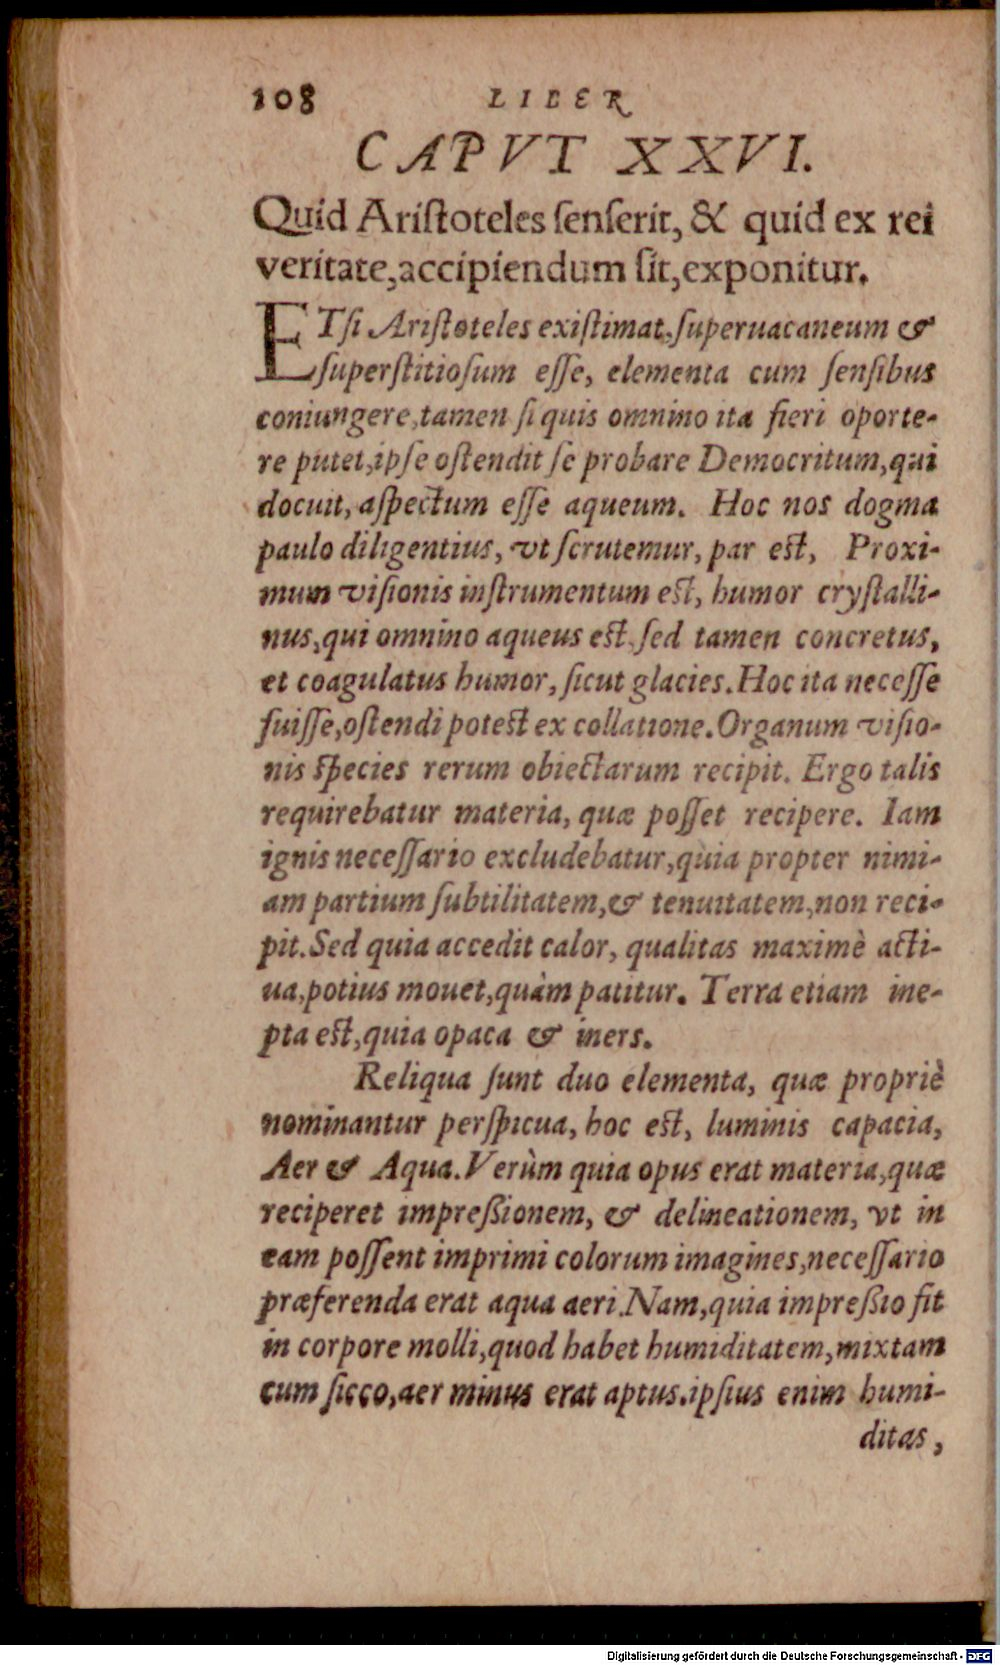 108 LIBER
CAPVT XXVI.
Quid Ariſtoteles ſenſerit, & quid ex rei
veritate,accipiendum ſit,exponitur.
ETſi Ariſtoteles exiſtimat,ſuperuacaneum &
ſuperſtitioſum eſſe, elementa cum ſenſibus
coniungere,tamen ſi quis omnino ita fieri oporte-
re putet,ipſe oſtendit ſe probare Democritum,qui
docuit, aſpectum eſſe aqueum. Hoc nos dogma
paulo diligentius, vt ſcrutemur, par eſt, Proxi-
mum viſionis inſtrumentum eſt, humor cryſtalli-
nus,qui omnino aqueus eſt,ſed tamen concretus,
et coagulatus humor, ſicut glacies. Hoc ita neceſſe
fuiſſe,oſtendi poteſt ex collatione. Organum viſio-
nis ſpecies rerum obiectarum recipit. Ergo talis
requirebatur materia, quæ poſſet recipere. Iam
ignis neceſſario excludebatur,quia propter nimi-
am partium ſubtilitatem,& tenuitatem,non reci-
pit. Sed quia accedit calor, qualitas maximè acti-
ua,potius mouet,quàm patitur. Terra etiam ine-
pta eſt,quia opaca & iners.
Reliqua ſunt duo elementa, quæ propriè
nominantur perſpicua, hoc eſt, luminis capacia,
Aer & Aqua. Verùm quia opus erat materia,quæ
reciperet impreßionem, & delineationem, vt in
eam poſſent imprimi colorum imagines,neceſſario
præferenda erat aqua aeri. Nam,quia impreßio fit
in corpore molli,quod habet humiditatem,mixtam
cum ſicco,aer minus erat aptus.ipſius enim humi-
ditas,
Digitalisierung gefördert durch die Deutsche Forschungsgemeinschaft - DFG